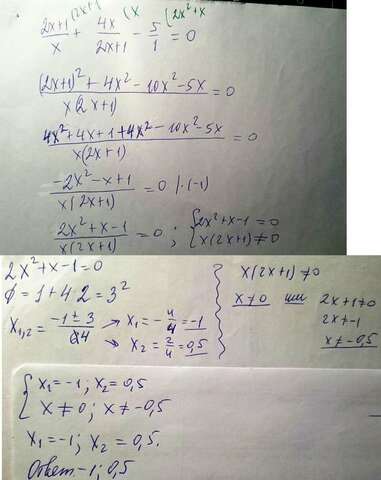 (2x+1 (x (2x²+x
2x+1/x + 4x/2x+1 - 5/1 = 0
(2x+1)² + 4x² - 10x² - 5x / x(2x+1) = 0
4x² + 4x + 1 + 4x² - 10x² - 5x / x(2x+1) = 0
-2x² - x + 1 / x(2x+1) = 0 /·(-1)
2x² + x - 1 / x(2x+1) = 0 ; { 2x² + x - 1 = 0
x(2x+1) ≠ 0
2x² + x - 1 = 0
D = 1 + 4·2 = 3²
x₁,₂ = -1 ± 3 / 4 → x₁ = -4/4 = -1
→ x₂ = 2/4 = 0,5
x(2x+1) ≠ 0
x ≠ 0 или 2x+1 ≠ 0
2x ≠ -1
x ≠ -0,5
{ x₁ = -1 ; x₂ = 0,5
x ≠ 0 ; x ≠ -0,5
x₁ = -1 ; x₂ = 0,5.
Ответ -1 ; 0,5